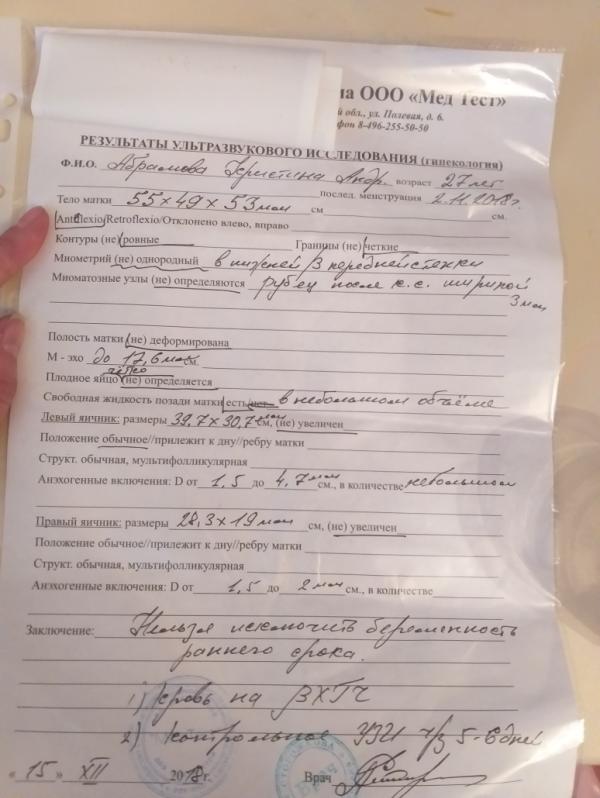 на ООО «Мед Тест»
й обл., ул. Полевая, д. 6.
фон 8-496-255-50-50
РЕЗУЛЬТАТЫ УЛЬТРАЗВУКОВОГО ИССЛЕДОВАНИЯ (гинекология)
Ф.И.О. Абрамова Кристина Андр. возраст 27 лет
Тело матки 55 х 49 х 53 мм см послед. менструация 2.11.2018г. см.
Anteflexio/Retroflexio/Отклонено влево, вправо
Контуры (не) ровные Границы (не) четкие
Миометрий (не) однородный в нижней 1/3 передней стенки
Миоматозные узлы (не) определяются рубец после к.с. шириной
3 мм
Полость матки (не) деформирована
М - эхо до 17,6 мм см.
Плодное яйцо (не) определяется
Свободная жидкость позади матки есть/нет в небольшом объёме
Левый яичник: размеры 39,7 х 30,7 мм см, (не) увеличен
Положение обычное//прилежит к дну//ребру матки
Структ. обычная, мультифолликулярная
Анэхогенные включения: D от 1,5 до 4,7 мм см., в количестве небольшом
Правый яичник: размеры 28,3 х 19 мм см, (не) увеличен
Положение обычное//прилежит к дну//ребру матки
Структ. обычная, мультифолликулярная
Анэхогенные включения: D от 1,5 до 2 мм см., в количестве
Заключение: Нельзя исключить беременность
раннего срока.
1) кровь на βХГЧ
2) контрольное УЗИ ч/з 5-6 дней
« 15 » XII 2018г. Врач